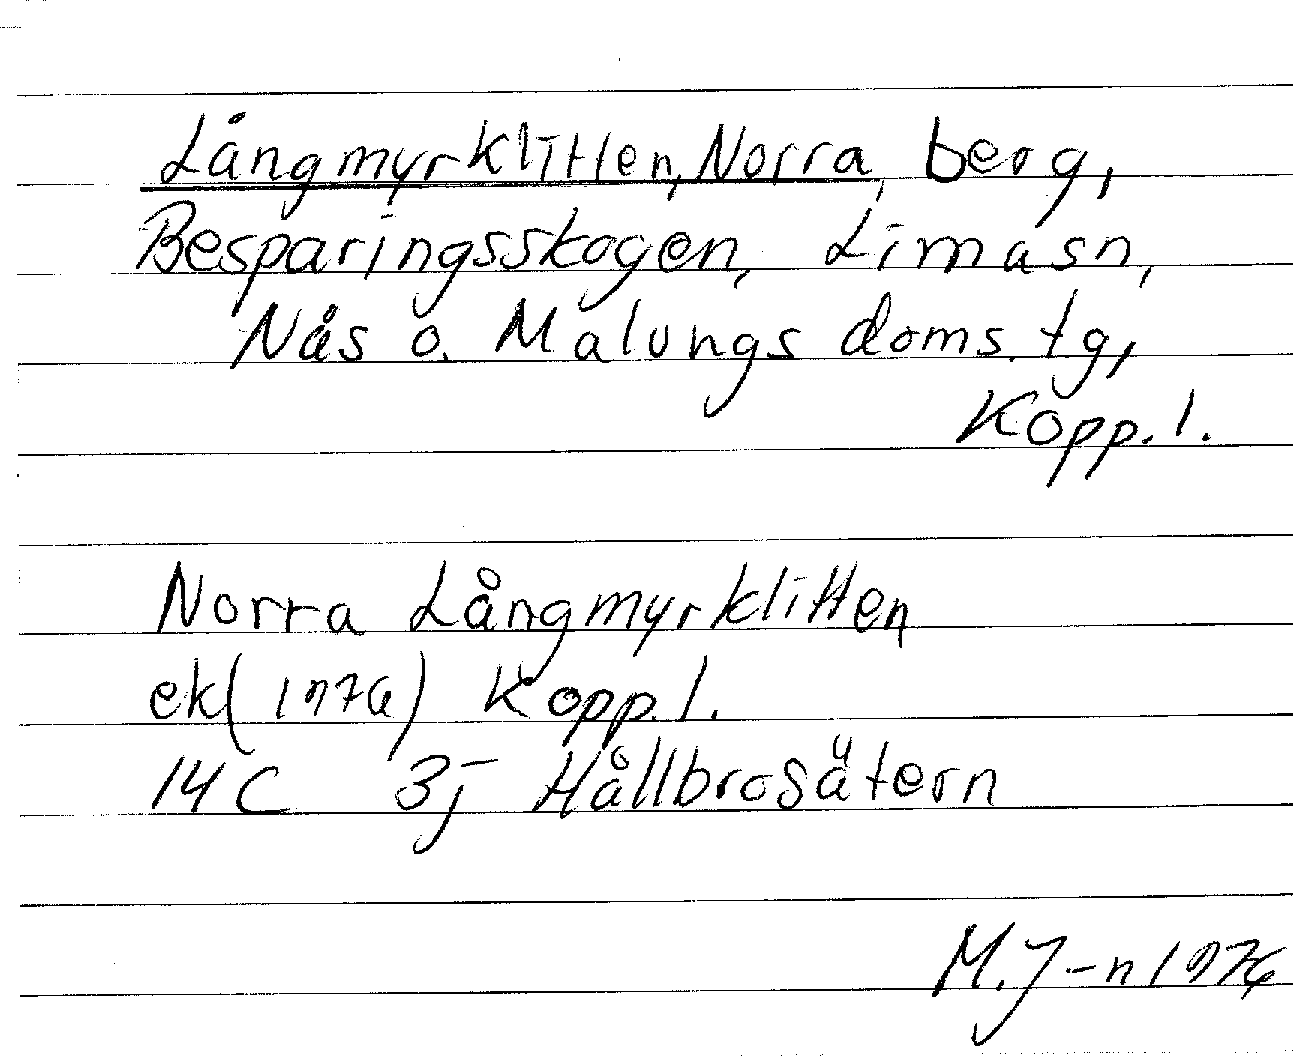 Långmyrklitten, Norra, berg,
Besparingsskogen, Lima sn,
Nås o. Malungs doms. tg,
Kopp. l.
Norra Långmyrklitten
ek (1974) Kopp. l.
14 C 3j Hållbrosätern
M. J-n 1974